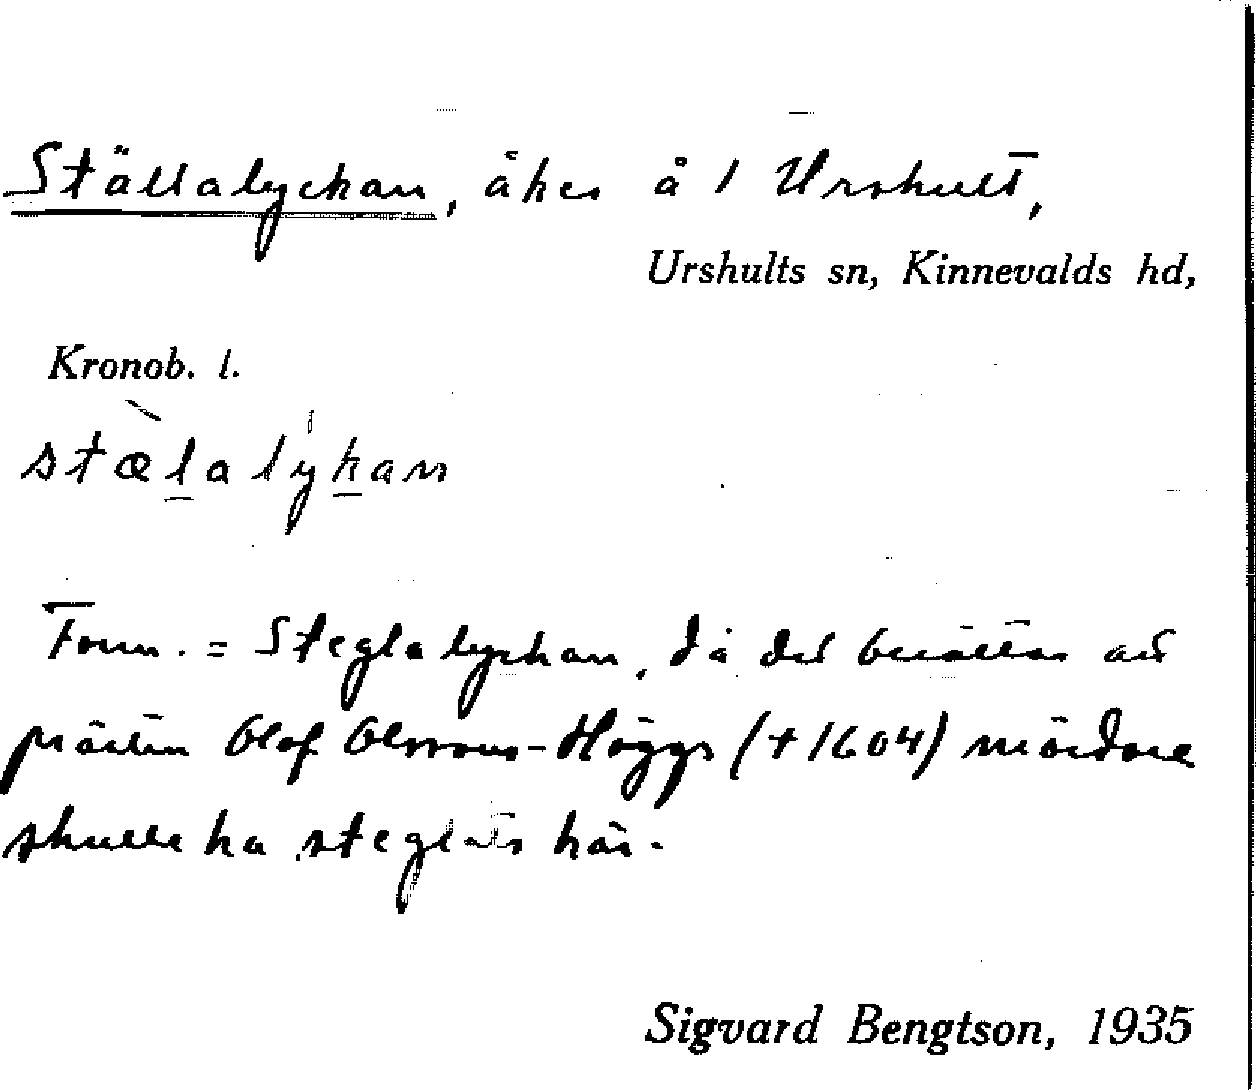 Ställalyckan, åker å 1 Urshult,
Urshults sn, Kinnevalds hd,
Kronob. l.
stæ̀lalykan
Form. = Steglalyckan, då det berättas att
prästen Olof Olsson-Höggs (+1604) mördare
skulle ha steglats här.
Sigvard Bengtson, 1935